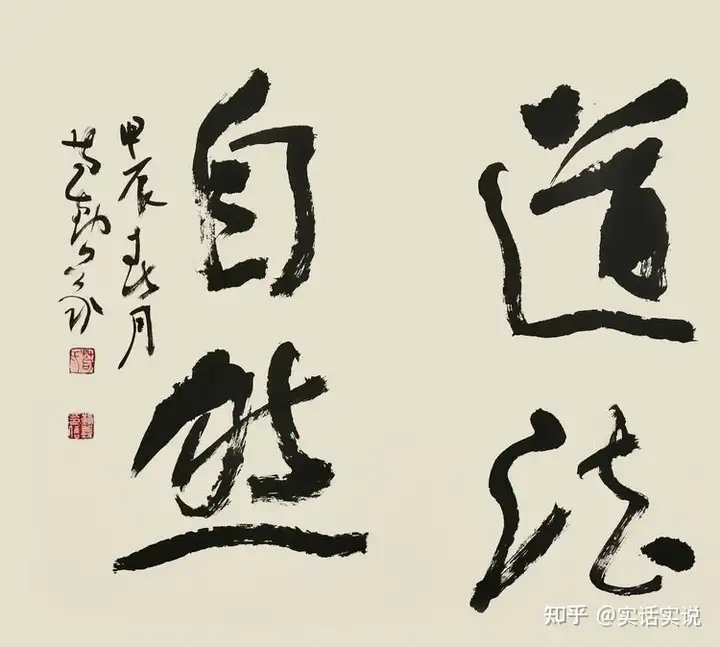 道法
自然
甲辰春月
知乎 @实话实说